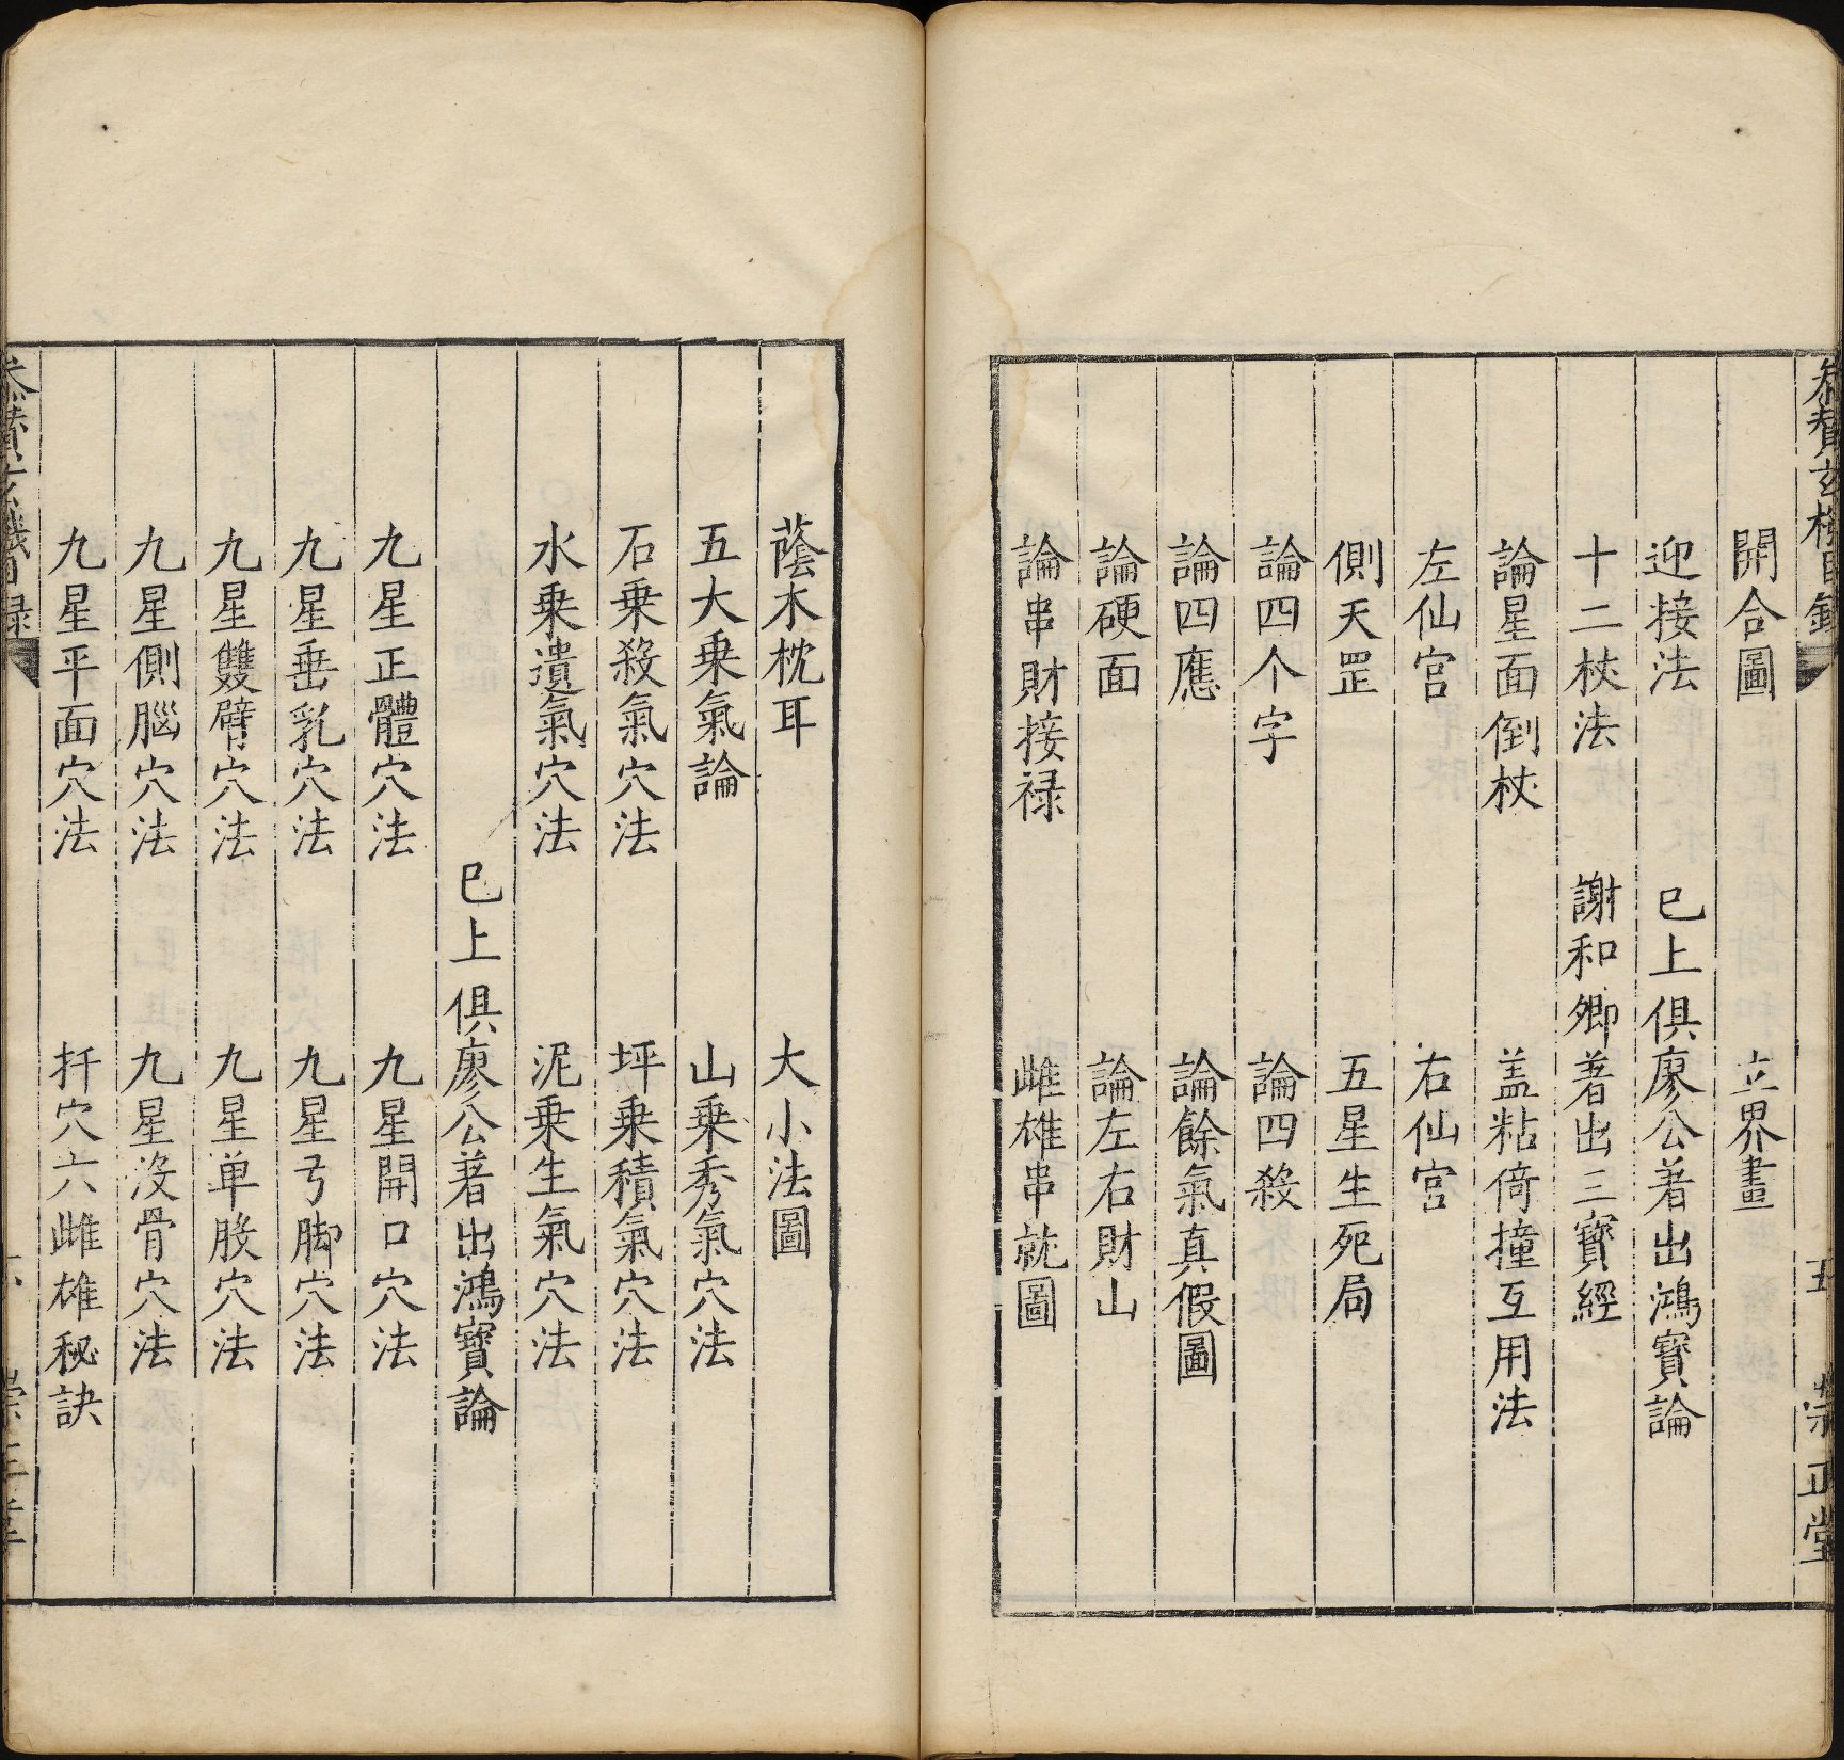 玄機目錄 五 崇正堂
開合圖 立界畫
迎接法 已上俱廖公著出鴻寶論
十二杖法 謝和卿著出三寶經
論星面倒杖 盖粘倚撞互用法
左仙宫 右仙宫
側天罡 五星生死局
論四个字 論四殺
論四應 論餘氣真假圖
論硬面 論左右財山
論串財接禄 雌雄串就圖
蔭木枕耳 大小法圖
五大乗氣論 山乗秀氣穴法
石乗殺氣穴法 坪乗積氣穴法
水乗遺氣穴法 泥乗生氣穴法
已上俱廖公著出鴻寶論
九星正體穴法 九星開口穴法
九星垂乳穴法 九星弓脚穴法
九星雙臂穴法 九星单股穴法
九星側腦穴法 九星没骨穴法
九星平面穴法 扦穴六雌雄秘訣